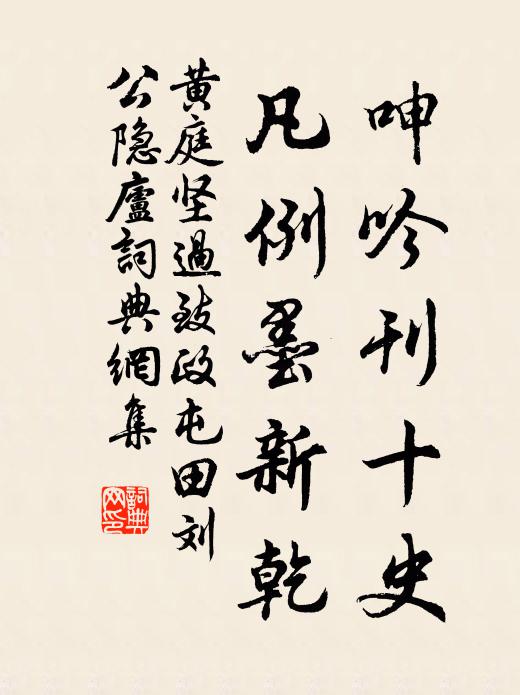 呻吟刊十史
凡例墨新乾
黄庭坚過致政屯田刘
公隐廬詞典網集
詞典网印